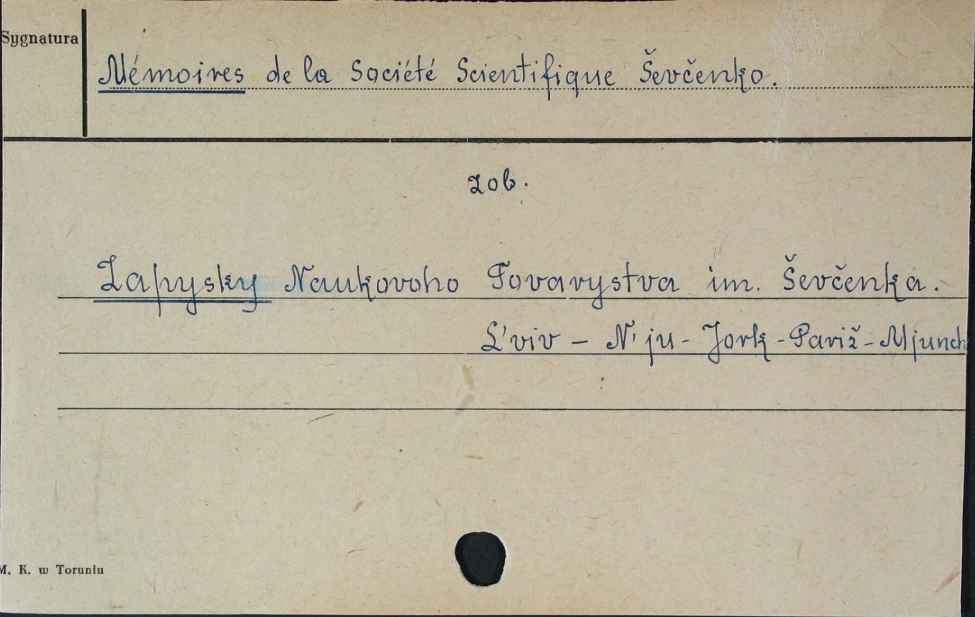 Sygnatura
Mémoires de la Société Scientifique Ševčenko.
zob.
Zapysky Naukovoho Tovarystva im. Ševčenka.
L'viv - N'ju-Jork-Pariž-Mjunch
M. K. w Toruniu